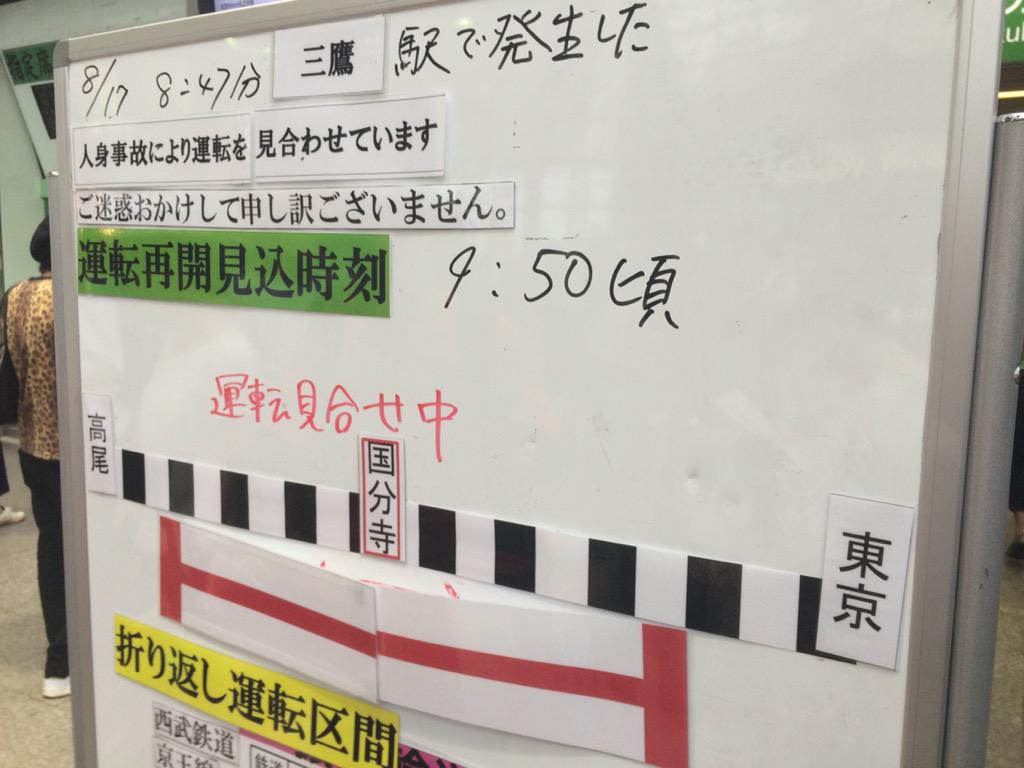 指定席
8/17 8:47分 三鷹 駅で発生した
人身事故により運転を 見合わせています
ご迷惑おかけして申し訳ございません。
運転再開見込時刻 9:50頃
運転見合せ中
高尾
国分寺
東京
折り返し運転区間
西武鉄道
京王線